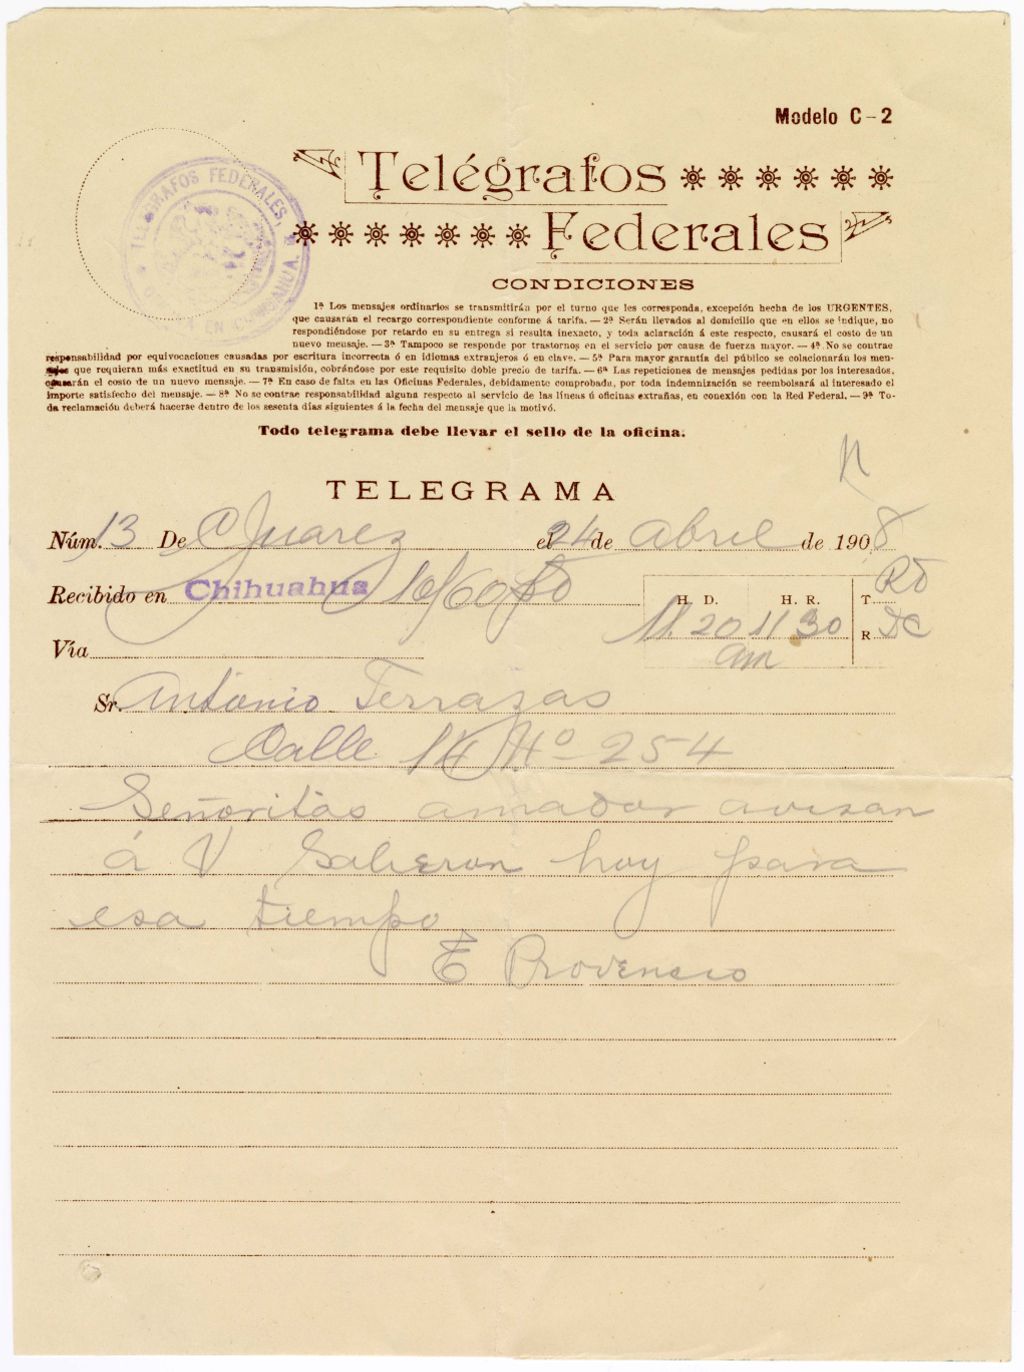 Modelo C-2
Telégrafos
Federales
TELEGRAFOS FEDERALES,
EN CHIHUAHUA.
CONDICIONES
1ª Los mensajes ordinarios se transmitirán por el turno que les corresponda, excepción hecha de los URGENTES,
que causarán el recargo correspondiente conforme á tarifa. — 2ª Serán llevados al domicilio que en ellos se indique, no
respondiéndose por retardo en su entrega si resulta inexacto, y toda aclaración á este respecto, causará el costo de un
nuevo mensaje. — 3ª Tampoco se responde por trastornos en el servicio por causa de fuerza mayor. — 4ª No se contrae
responsabilidad por equivocaciones causadas por escritura incorrecta ó en idiomas extranjeros ó en clave. — 5ª Para mayor garantía del público se colacionarán los men-
sajes que requieran más exactitud en su transmisión, cobrándose por este requisito doble precio de tarifa. — 6ª Las repeticiones de mensajes pedidas por los interesados,
causarán el costo de un nuevo mensaje. — 7ª En caso de falta en las Oficinas Federales, debidamente comprobada, por toda indemnización se reembolsará al interesado el
importe satisfecho del mensaje. — 8ª No se contrae responsabilidad alguna respecto al servicio de las líneas ú oficinas extrañas, en conexión con la Red Federal. — 9ª To-
da reclamación deberá hacerse dentro de los sesenta días siguientes á la fecha del mensaje que la motivó.
Todo telegrama debe llevar el sello de la oficina.
TELEGRAMA
Núm. 13 De C Juarez el 24 de abril de 1908
Recibido en Chihuahua 10/60
H. D. H. R. T. RD
11.20 11 30 R DC
am
Vía
Sr. Antonio Terrazas
Calle 14 Nº 254
Señoritas amador avisan
á V Salieron hoy para
esa tiempo
E Provencio